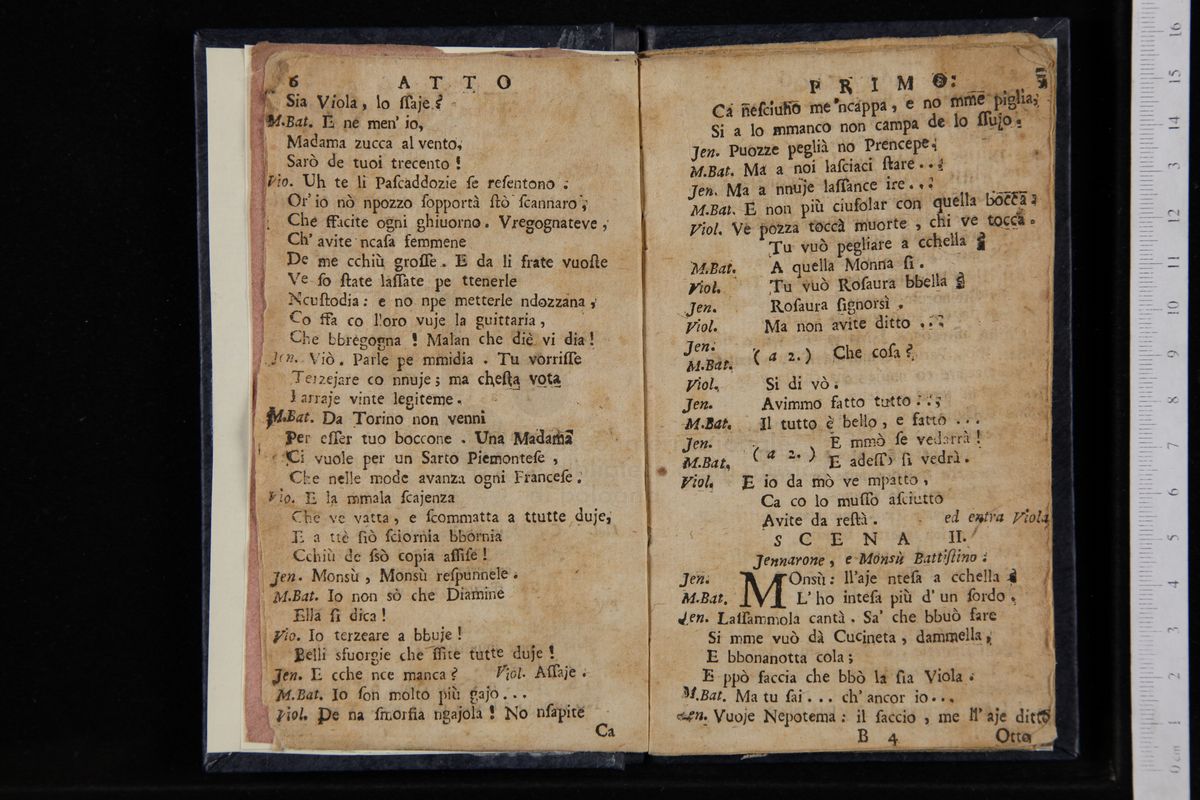 6 ATTO
Sia Viola, lo ſſaje?
M.Bat. E ne men' io,
Madama zucca al vento,
Sarò de tuoi trecento!
Vio. Uh te li Paſcaddozie ſe reſentono:
Or' io nò npozzo ſopportà ſtò ſcannaro;
Che ffacite ogni ghiuorno. Vregognateve,
Ch' avite ncaſa femmene
De me cchiù groſſe. E da li frate vuoſte
Ve ſo ſtate laſſate pe ttenerle
Ncuſtodia: e no npe metterle ndozzana,
Co ffa co l'oro vuje la guittaria,
Che bbregogna! Malan che diè vi dia!
Jen. Viò. Parle pe mmidia. Tu vorriſſe
Terzejare co nnuje; ma cheſta vota
Farraje vinte legiteme.
M.Bat. Da Torino non venni
Per eſſer tuo boccone. Una Madama
Ci vuole per un Sarto Piemonteſe,
Che nelle mode avanza ogni Franceſe.
Vio. E la mmala ſcajenza
Che ve vatta, e ſcommatta a ttutte duje,
E a ttè ſiò ſciornia bbornia
Cchiù de ſsò copia aſſiſe!
Jen. Monsù, Monsù reſpunnele.
M.Bat. Io non sò che Diamine
Ella ſi dica!
Vio. Io terzeare a bbuje!
Belli sfuorgie che ſſite tutte duje!
Jen. E cche nce manca? Viol. Aſſaje.
M.Bat. Io ſon molto più gajo...
Viol. De na ſmorfia ngajola! No nſapite
Ca
PRIMO.
Ca neſciuno me 'ncappa, e no mme piglia,
Si a lo mmanco non campa de lo ſſujo.
Jen. Puozze peglià no Prencepe.
M.Bat. Ma a noi laſciaci ſtare...
Jen. Ma a nnuje laſſance ire...
M.Bat. E non più ciufolar con quella bocca.
Viol. Ve pozza toccà muorte, chi ve tocca.
Tu vuò pegliare a cchella?
M.Bat. A quella Monna ſi.
Viol. Tu vuò Roſaura bbella?
Jen. Roſaura ſignorsì.
Viol. Ma non avite ditto...
Jen.
M.Bat. (a 2.) Che coſa?
Viol. Si di vò.
Jen. Avimmo fatto tutto...
M.Bat. Il tutto è bello, e fatto...
Jen. E mmò ſe vedarrà!
M.Bat. (a 2.) E adeſſo ſi vedrà.
Viol. E io da mò ve mpatto,
Ca co lo muſſo aſciutto
Avite da reſtà. ed entra Viola
SCENA II.
Jennarone, e Monsù Battiſtino.
Jen. MOnsù: ll'aje nteſa a cchella?
M.Bat. L' ho inteſa più d' un ſordo.
Jen. Laſſammola cantà. Sa' che bbuò fare
Si mme vuò dà Cucineta, dammella,
E bbonanotta cola;
E ppò faccia che bbò la ſia Viola.
M.Bat. Ma tu ſai... ch' ancor io...
Jen. Vuoje Nepotema: il ſaccio, me ll' aje ditto
B 4 Otto